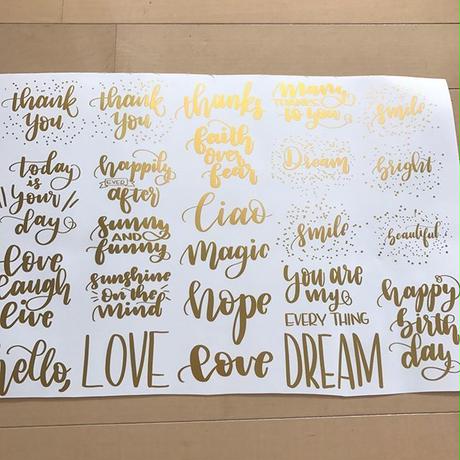 thank
you
thank
you
thanks
many
THANKS
to you
smile
faith
over
fear
Dream
bright
today
is
your
day
happily
EVER
after
Ciao
smile
beautiful
sunny
AND
funny
Magic
love
laugh
live
sunshine
on the
mind
hope
you are
my
EVERY THING
happy
birth
day
hello,
LOVE
love
DREAM